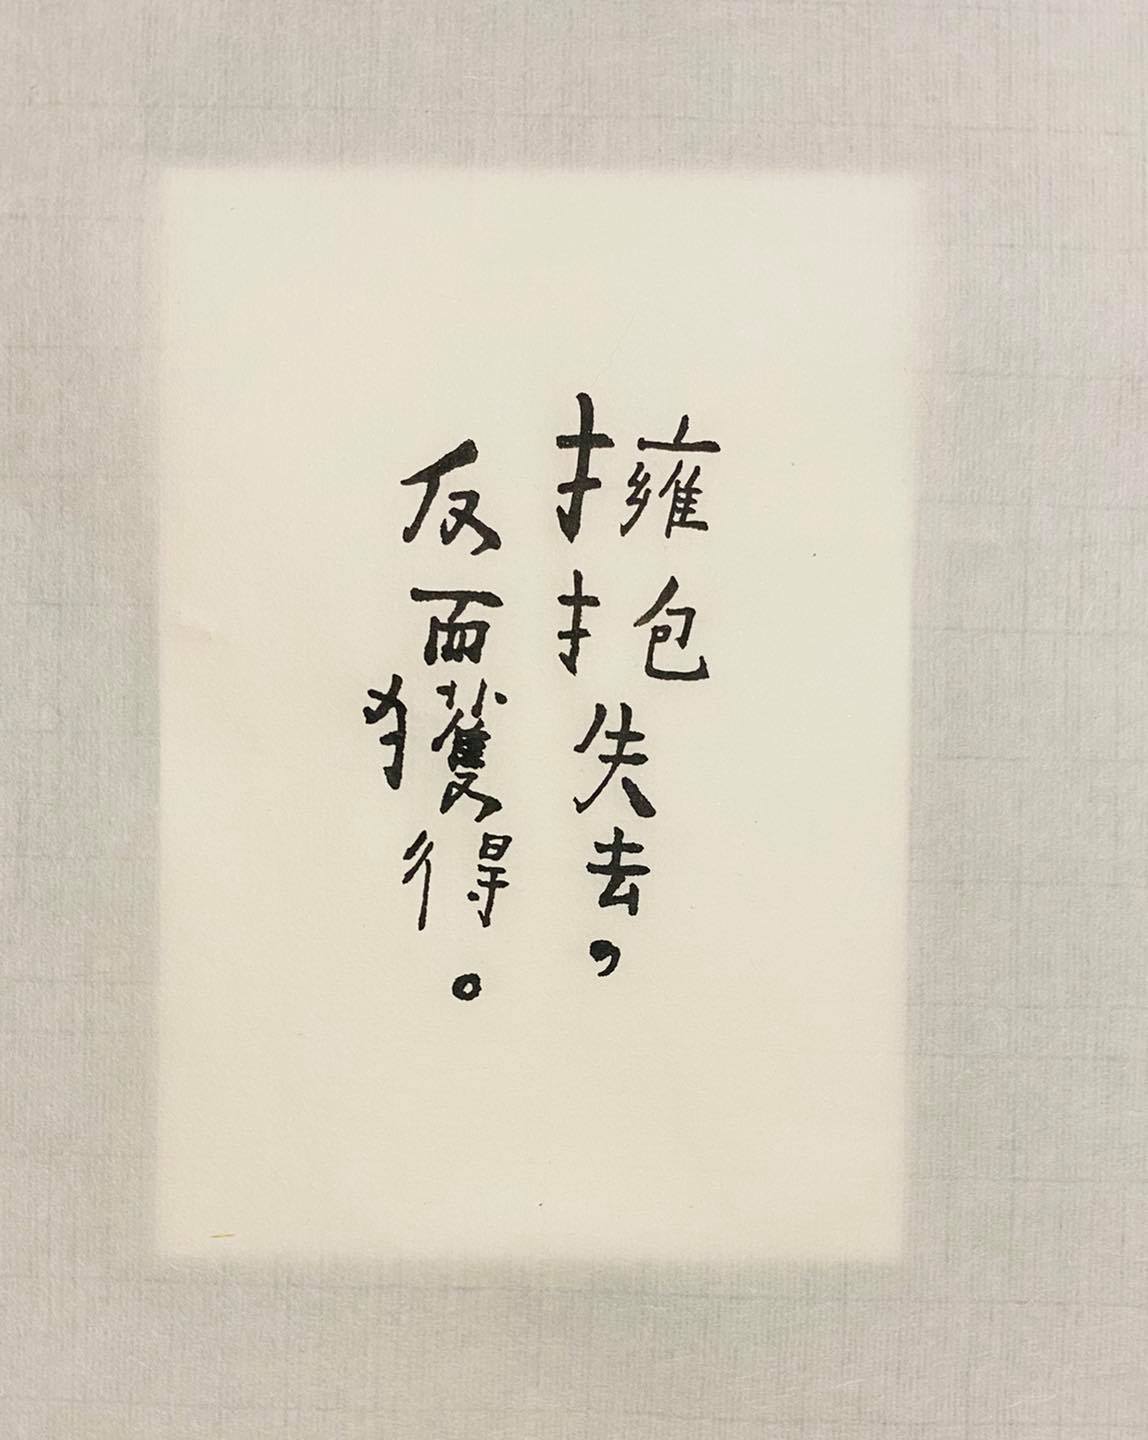 擁抱失去，
反而獲得。